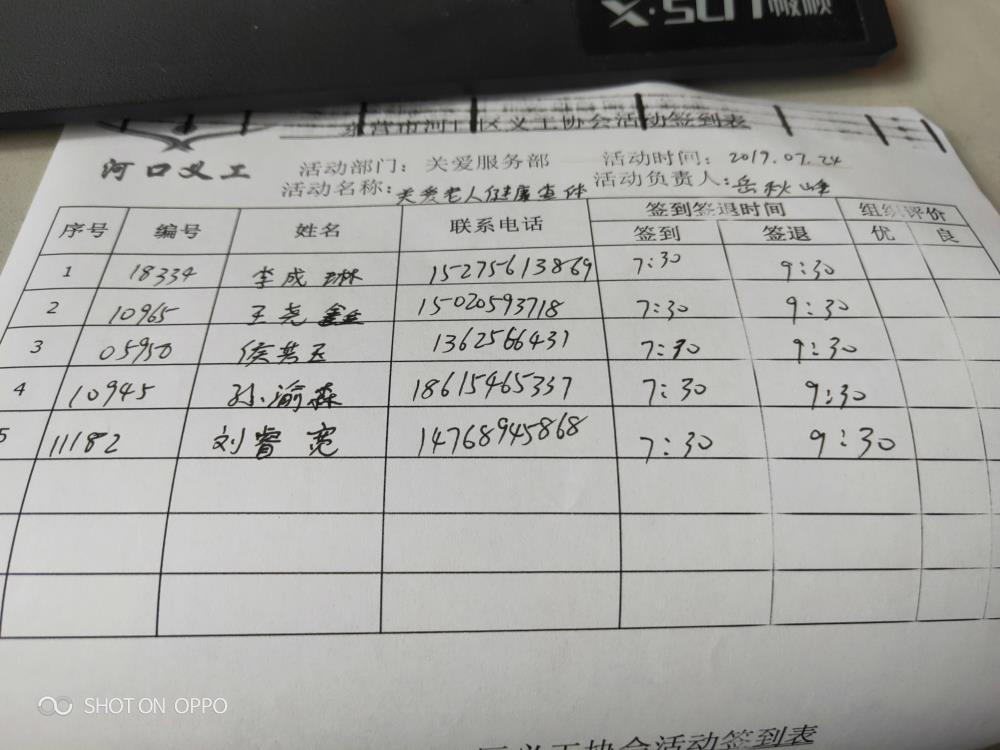 东营市河口区义工协会活动签到表
河口义工 活动部门：关爱服务部 活动时间：2019.07.24
活动名称：关爱老人健康查体 活动负责人：岳秋峰
序号 编号 姓名 联系电话 签到签退时间 组织评价
签到 签退 优 良
1 18334 李成琳 15275613869 7:30 9:30
2 10965 王尧鑫 15020593718 7:30 9:30
3 05950 侯英玉 1362566431 7:30 9:30
4 10945 孙渝森 18615465337 7:30 9:30
5 11182 刘睿宽 14768945868 7:30 9:30
SHOT ON OPPO
义工协会活动签到表